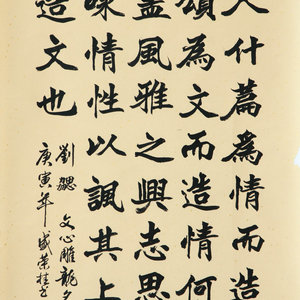 人什篇為情而造
頌為文而造情何
蓋風雅之興志思
咏情性以諷其上
造文也
劉勰 文心雕龍
庚寅年 盛荣桂书